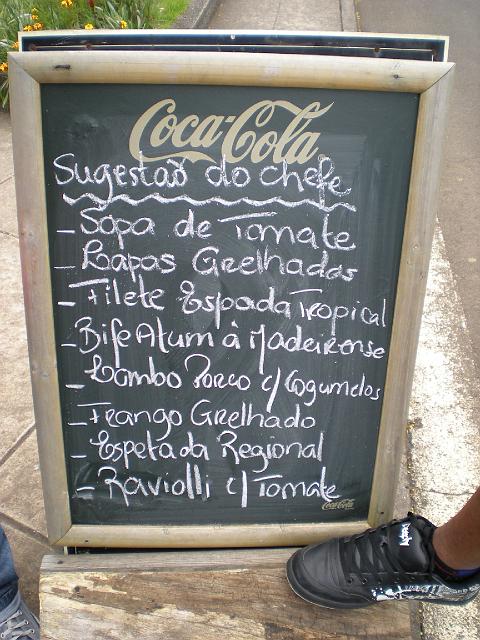 Coca-Cola
Sugestão do chefe
- Sopa de Tomate
- Lapas Grelhadas
- Filete Espada Tropical
- Bife Atum à Madeirense
- Lombo Porco c/ Cogumelos
- Frango Grelhado
- Espetada Regional
- Raviolli c/ Tomate
Coca-Cola